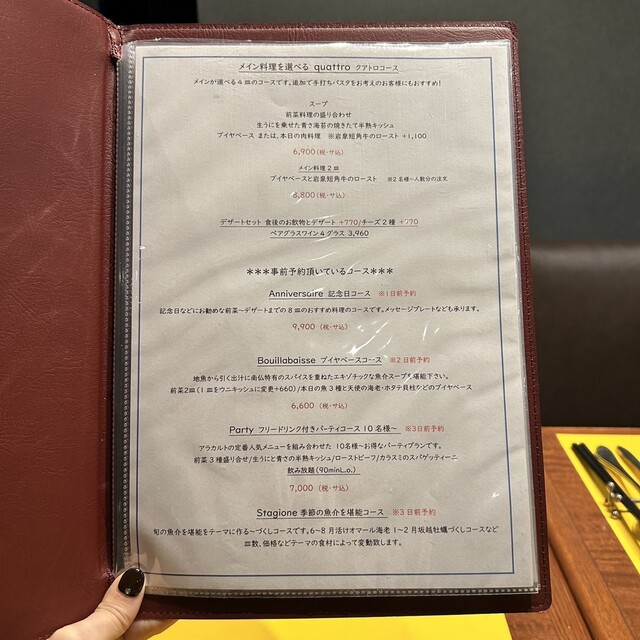 メイン料理を選べる quattro クアトロコース
メインが選べる４皿のコースです。追加で手打ちパスタをお考えのお客様にもおすすめ！
スープ
前菜料理の盛り合わせ
生うにを乗せた青さ海苔の焼きたて半熟キッシュ
ブイヤベース または、本日の肉料理 ※岩泉短角牛のロースト +1,100
6,900（税・サ込）
メイン料理２皿
ブイヤベースと岩泉短角牛のロースト ※２名様～人数分の注文
8,800（税・サ込）
デザートセット 食後のお飲物とデザート +770/チーズ２種 +770
ペアグラスワイン４グラス 3,960
＊＊＊事前予約頂いているコース＊＊＊
Anniversaire 記念日コース ※１日前予約
記念日などにお勧めな前菜～デザートまでの８皿のおすすめ料理のコースです。メッセージプレートなども承ります。
9,900（税・サ込）
Bouillabaisse ブイヤベースコース ※２日前予約
地魚から引く出汁に南仏特有のスパイスを重ねたエキゾチックな魚介スープを堪能下さい。
前菜2皿（１皿をウニキッシュに変更+660）/本日の魚３種と天使の海老・ホタテ貝柱などのブイヤベース
6,600（税・サ込）
Party フリードリンク付きパーティコース 10名様～ ※3日前予約
アラカルトの定番人気メニューを組み合わせた 10名様～お得なパーティプランです。
前菜３種盛り合せ/生うにと青さの半熟キッシュ/ローストビーフ/カラスミのスパゲッティーニ
飲み放題（90minL.o.）
7,000（税・サ込）
Stagione 季節の魚介を堪能コース ※３日前予約
旬の魚介を堪能をテーマに作る～づくしコースです。6～8月活けオマール海老 1～2月坂越牡蠣づくしコースなど
皿数、価格などテーマの食材によって変動致します。